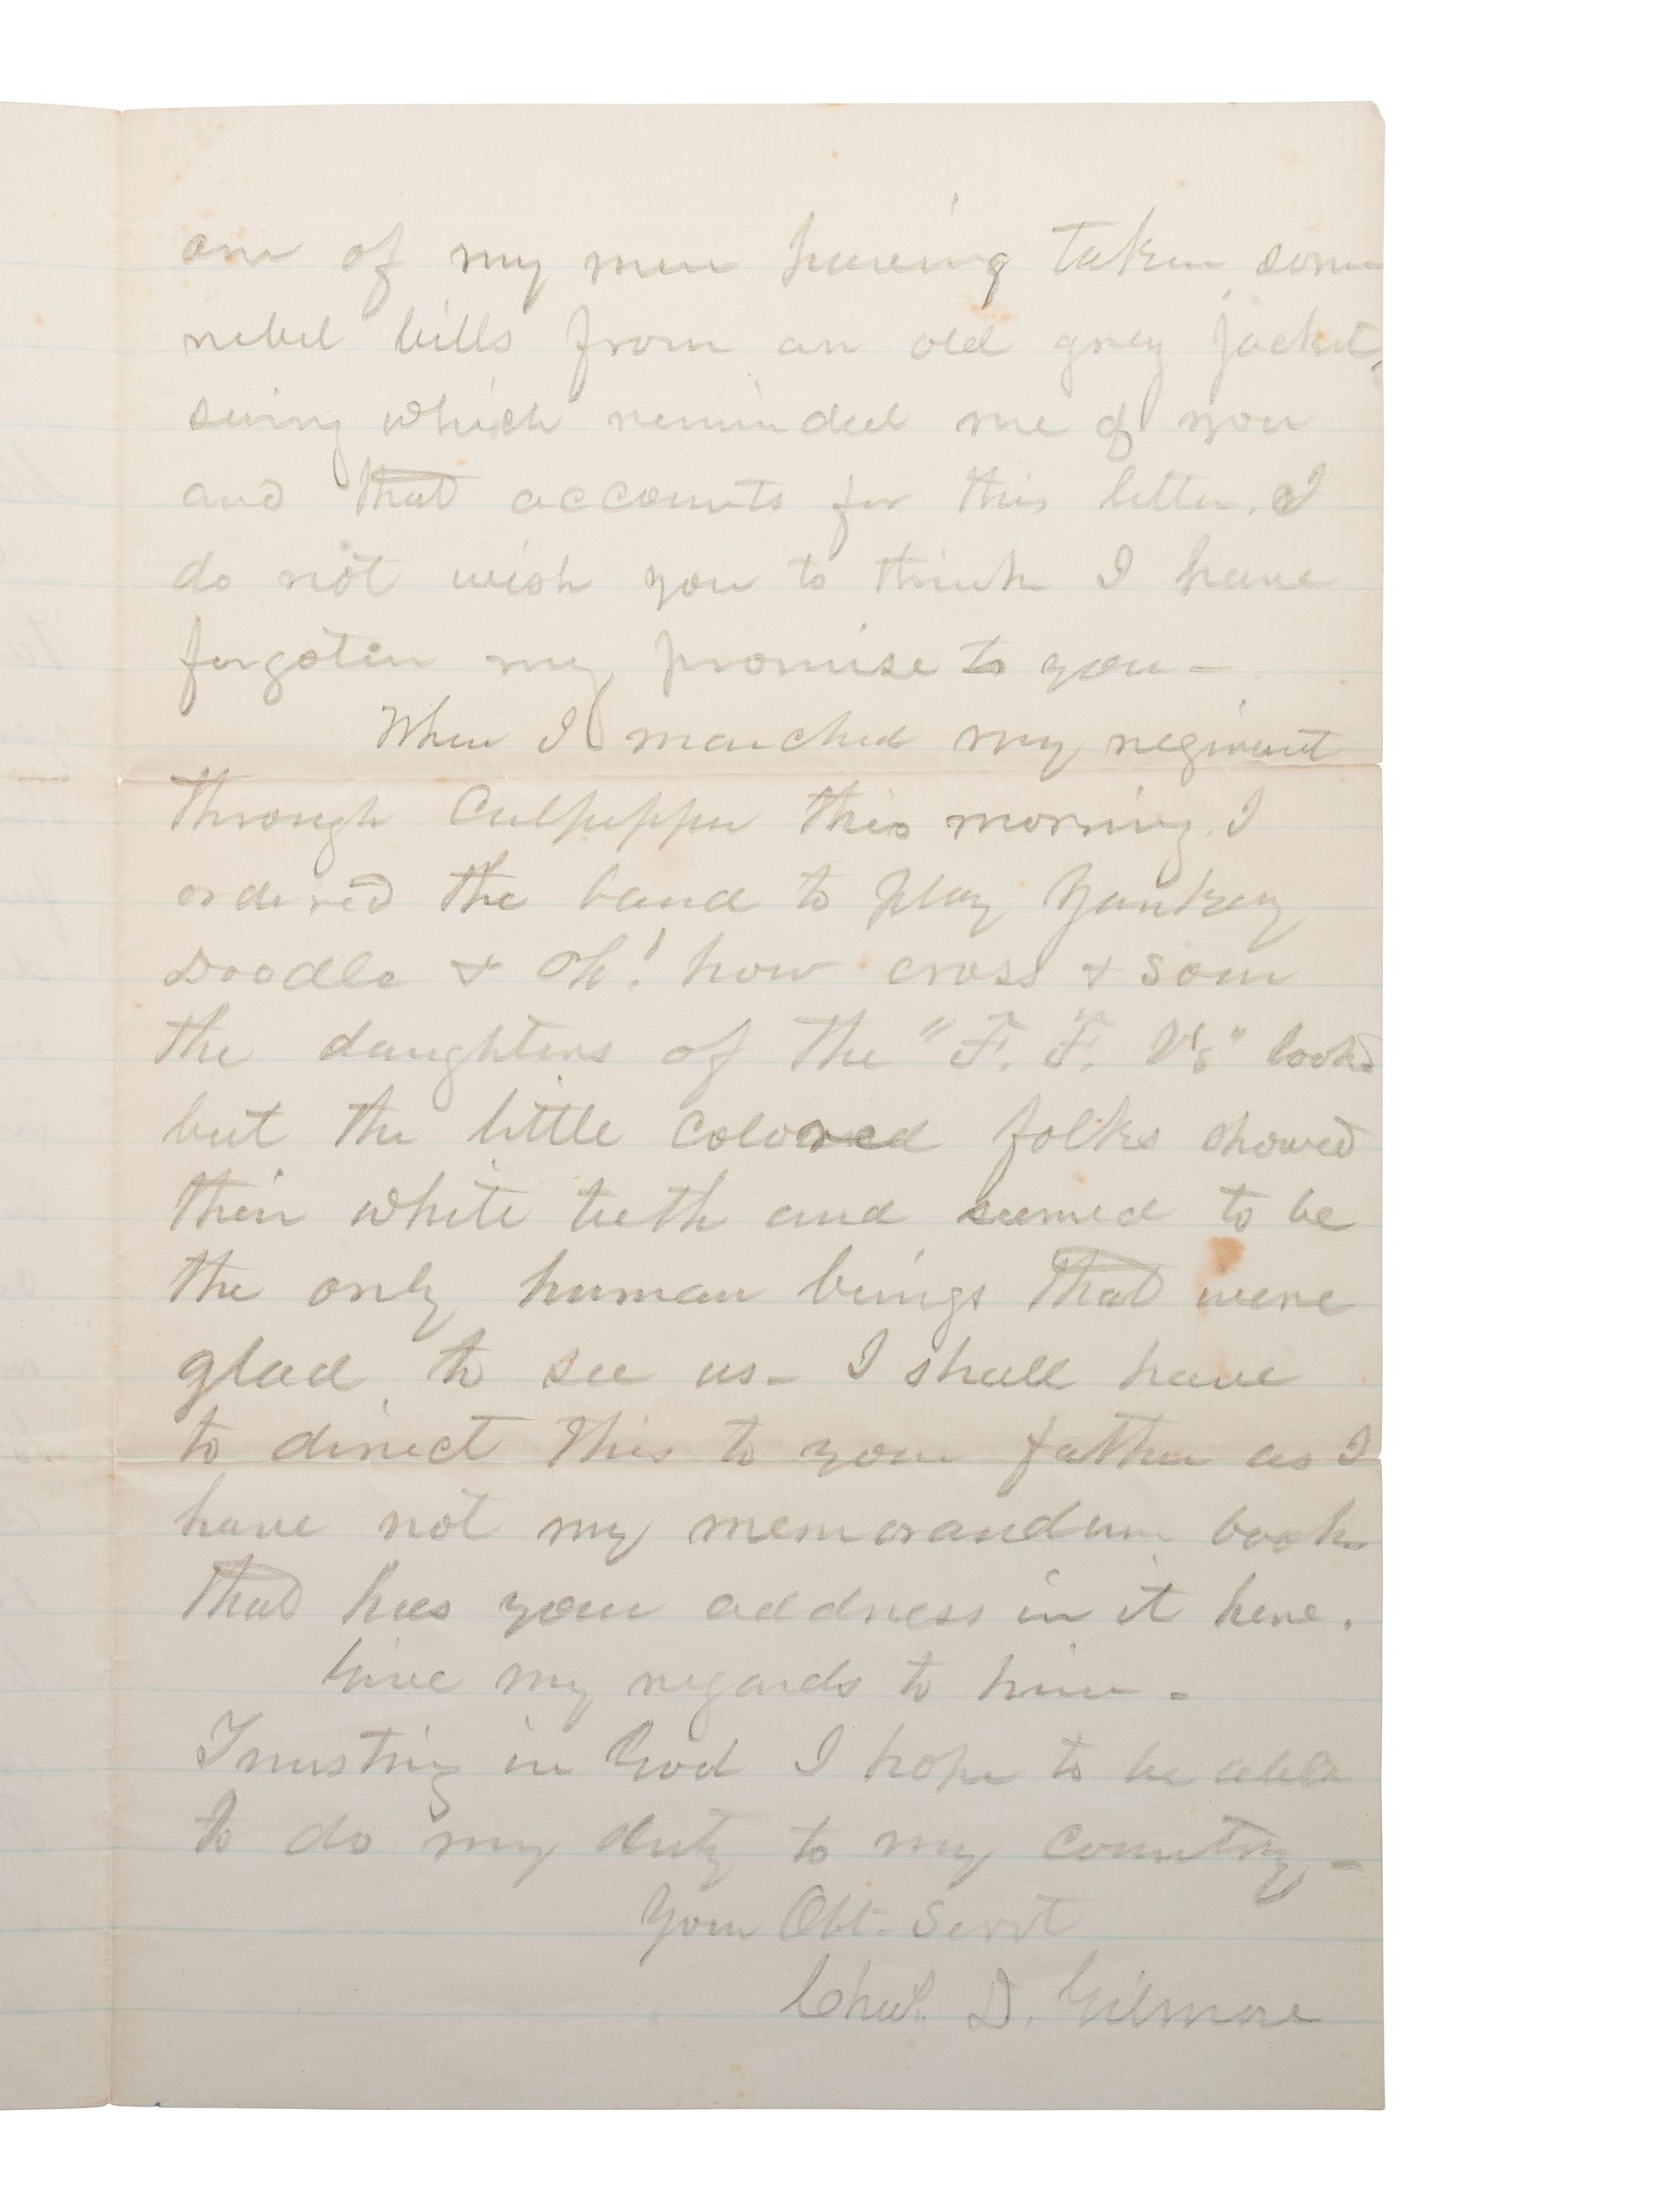 one of my men haveing taken some
rebel bills from an old grey jacket,
seeing which reminded me of you
and that accounts for this letter. I
do not wish you to think I have
forgoten my promise to you -
When I marched my regiment
through Culpepper this morning I
ordered the band to play Yankey
Doodle & Oh! how cross & sour
the daughters of the "F. F. V's" look'd
but the little colored folks showed
their white teeth and seemed to be
the only human beings that were
glad to see us - I shall have
to direct this to your father as I
have not my memorandum book
that has your address in it here.
Give my regards to him -
Trusting in God I hope to be able
to do my duty to my country -
Your Obt. Servt
Chas. D. Gilmore